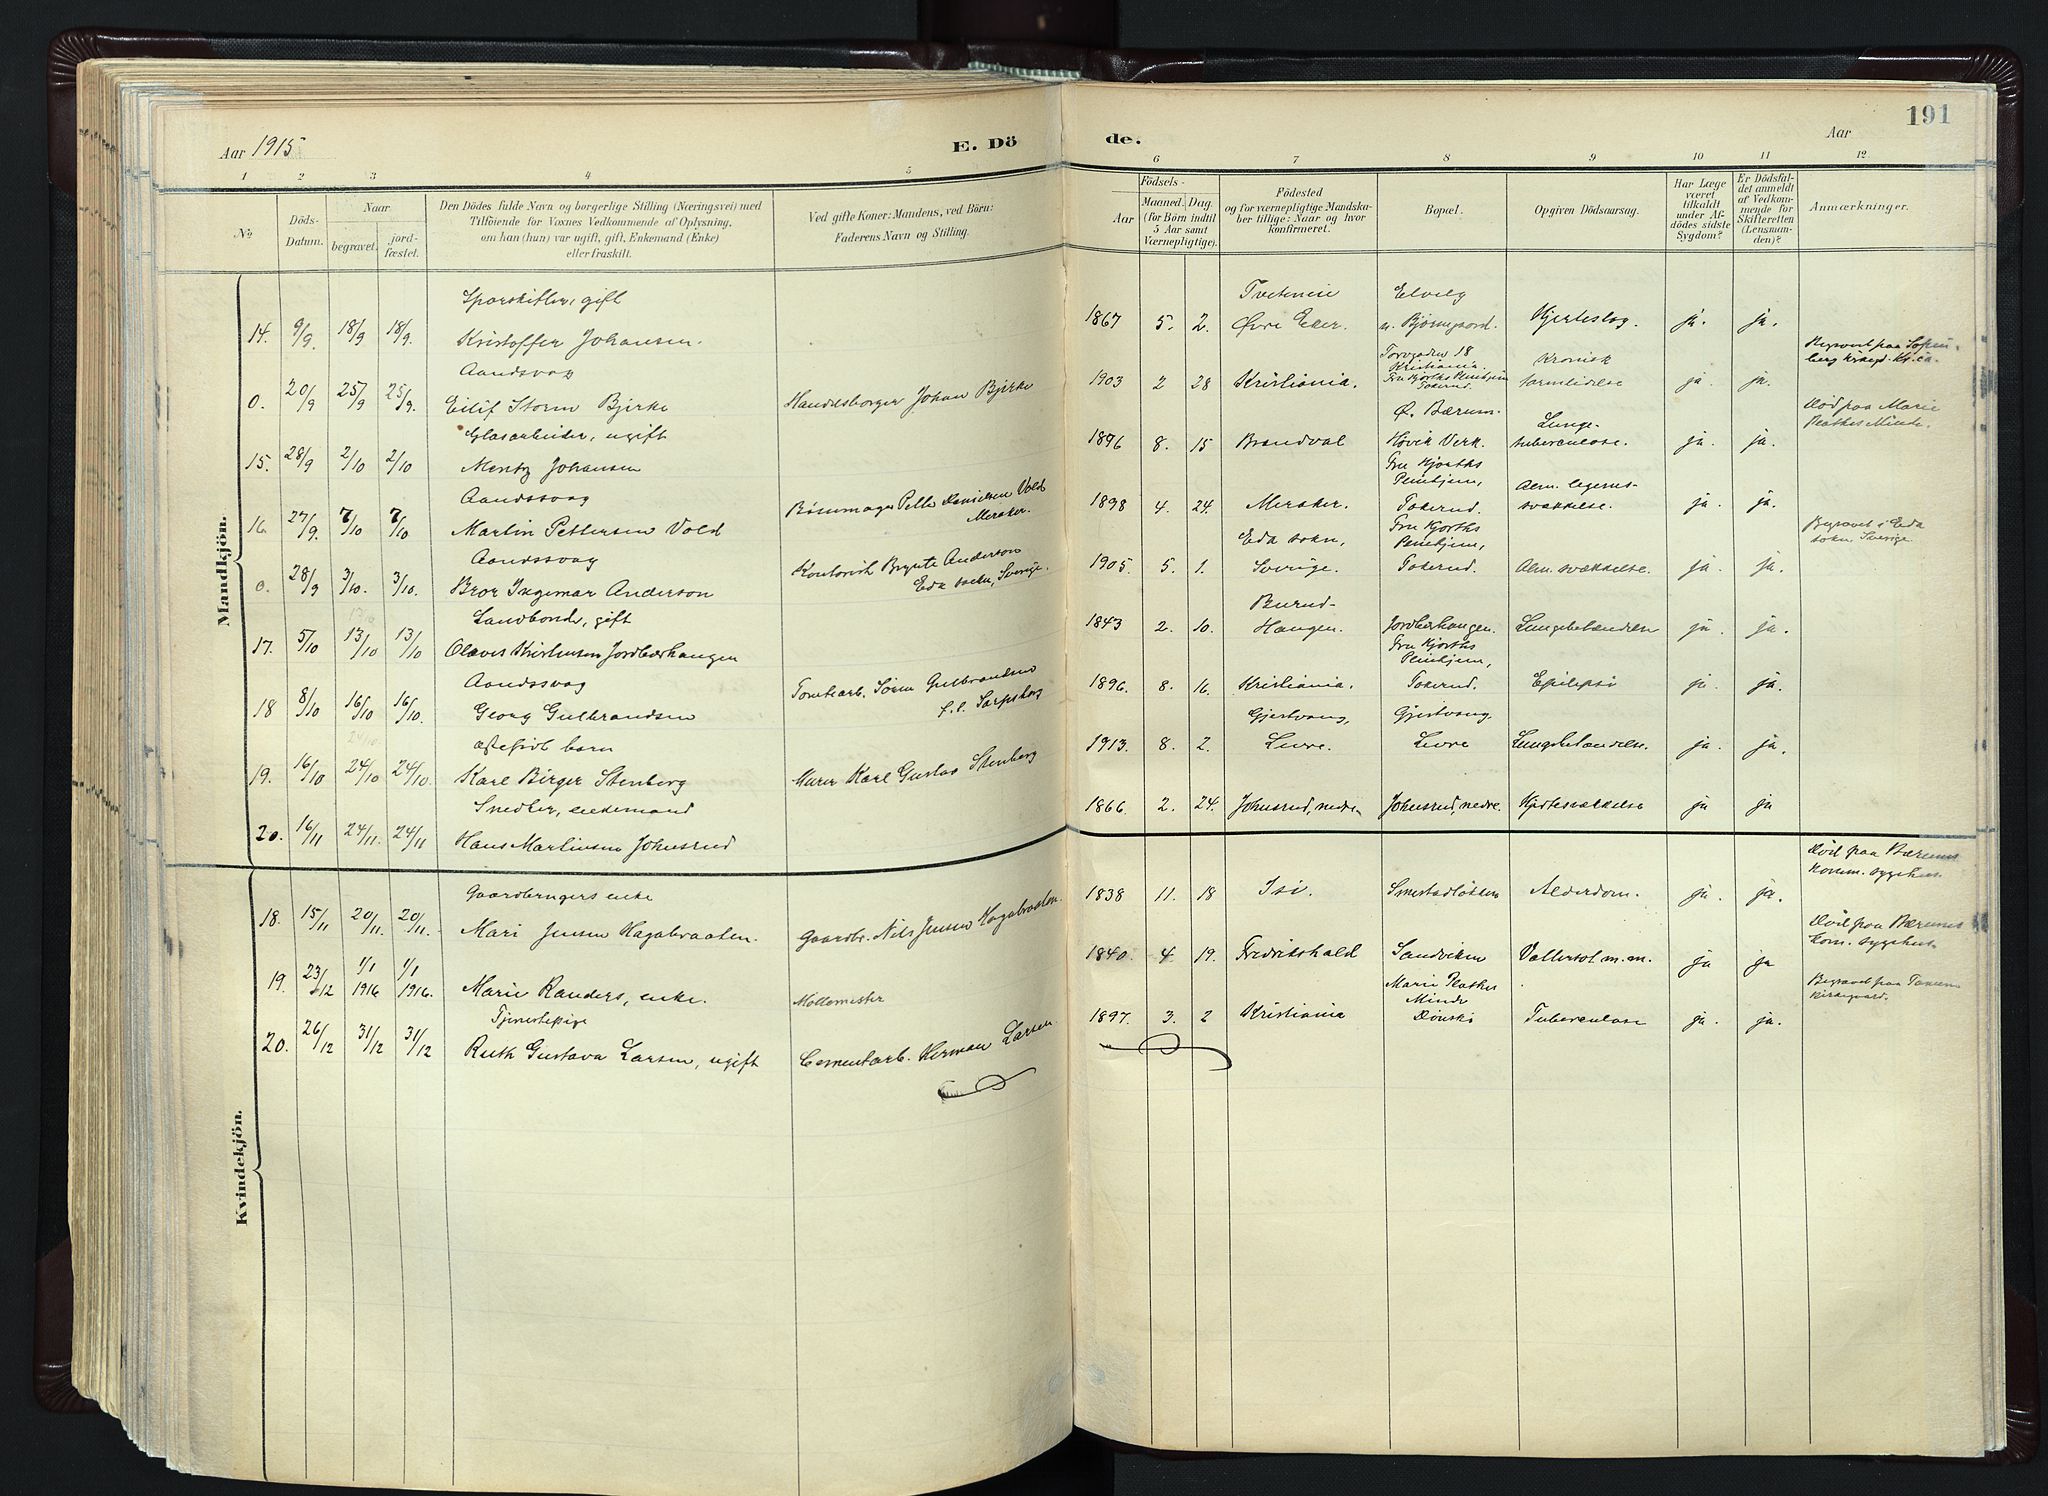 Aar 1915
E. Dö
de.
Aar
191
1 2 3 4 5 6 7 8 9 10 11 12
№
Döds-
Datum.
Naar
begravet.
jord-
fæstet.
Den Dödes fulde Navn og borgerlige Stilling (Næringsvei) med
Tilföiende för Voxnes Vedkommende af Oplysning,
om han (hun) var ugift, gift, Enkemand (Enke)
eller fraskilt.
Ved gifte Koner: Mandens, ved Börn:
Faderens Navn og Stilling.
Födsels-
Aar
Maaned. Dag.
(for Börn indtil
5 Aar samt
Værnepligtige).
Födested
og for værnepligtige Mandska-
ber tillige: Naar og hvor
konfirmeret.
Bopæl.
Opgiven Dödsaarsag.
Har Læge
været
tilkaldt
under Af-
dödes sidste
Sygdom?
Er Dödsfal-
det anmeldt
af Vedkom-
mende for
Skifteretten
(Lensman-
den)?
Anmærkninger.
Mandkjön.
Sporskifter, gift
14. 9/9. 18/9 18/9. Kristoffer Johansen.
1867 5. 2. Øvre Eker. n. Bjerkeslag. ja. ja.
Aandsvag
0. 20/9 25/9 25/9. Eilif Storm Bjerke
Handelsborger Johan Bjerke
Torvgaden 18
Kristiania.
Fru Kjorths Pleiehjem
Tokerud.
Kronisk
tarmlidelse
1903 2 28 Kristiania. ja. ja.
Begravet paa Sofien-
berg kirkeg. Kr.ia.
Glasarbeider, ugift
15. 28/9 2/10 2/10 Mentz Johansen
Ø. Bærum.
Høvik Verk.
Lunge-
tuberculose.
1896 8. 15 Brandval ja. ja.
Død paa Marie
Plathes Minde.
Aandssvag
16. 27/9. 7/10 7/10 Martin Pettersen Vold
Pelle Danielsen Vold
Meraker.
Fru Kjorths
Pleiehjem,
Tokerud.
Alm. legems-
svækkelse.
1898 4. 24. Meraker. ja. ja.
Aandssvag
0. 28/9 3/10. 3/10. Bror Ingemar Anderson
Kontorist Brynte Anderson
Eda sokn, Sverige.
Eda sokn,
Sverige.
Fru Kjorths
Pleiehjem,
Tokerud.
1905. 5. 1. Alm. svækkelse. ja. ja.
Begravet i Eda
sokn, Sverige.
Landbonde, gift
17. 5/10 13/10 13/10 Olaves Kristensen Jordbærhaugen
1843 2. 10. Burud-
Haugen. Jordbærhaugen. Lungebetændelse ja. ja.
Aandssvag
18 8/10 16/10 16/10. Georg Gulbrandsen
Tomtearb. Søren Gulbrandsen
f. i. Sarpsborg
1896. 8. 16. Kristiania.
Fru Kjorths
Pleiehjem,
Tokerud. Epilepsi ja. ja.
ægtefødt barn
19. 16/10 24/10 24/10 Karl Birger Stenberg
Murer Karl Gustav Stenberg
1913. 8. 2. Gjestvang,
Levre. Gjestvang,
Levre Lungebetændelse. ja. ja.
Smedker, enkemand
20. 16/11 24/11. 24/11 Hans Martinsen Johnsrud
1866. 2. 24. Johnsrud, nedre. Johnsrud, nedre. Hjertesvækkelse ja ja
Kvindekjön.
Gaardbrugers enke
18. 15/11 20/11. 20/11. Mari Jensen Hagabraaten.
Gaardbr. Nils Jensen Hagabraaten.
1838 11. 18 Isi. Smestadløkken Alderdom. ja ja.
Død paa Bærums
komm. sygehus
19. 23/12 1/1 1916 1/1 1916. Marie Randers, enke.
Møllemester
1840. 4 19. Fredrikshald Sandviken Vattersot m.m. ja ja
Død paa Bærums
kom. sygehus
Tjenestepige
20. 26/12 31/12 31/12 Ruth Gustava Larsen, ugift
Cementarb. Herman Larsen
1897. 3. 2 Kristiania
Marie Plathes
Minde
Dønski Tuberculose ja. ja.
Begravet paa Tanum
kirkegaard.